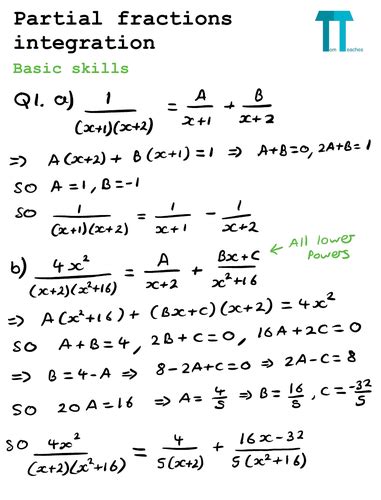 Partial fractions
integration
Tom Teaches
Basic skills
Q1. a) 1/((x+1)(x+2)) = A/(x+1) + B/(x+2)
⇒ A(x+2) + B(x+1) = 1 ⇒ A+B=0, 2A+B=1
SO A=1, B=-1
SO 1/((x+1)(x+2)) = 1/(x+1) - 1/(x+2)
b) 4x²/((x+2)(x²+16)) = A/(x+2) + (Bx+C)/(x²+16) ← All lower
Powers
⇒ A(x²+16) + (Bx+C)(x+2) = 4x²
SO A+B=4, 2B+C=0, 16A+2C=0
⇒ B=4-A ⇒ 8-2A+C=0 ⇒ 2A-C=8
SO 20A=16 ⇒ A=4/5 ⇒ B=16/5, C=-32/5
SO 4x²/((x+2)(x²+16)) = 4/(5(x+2)) + (16x-32)/(5(x²+16))